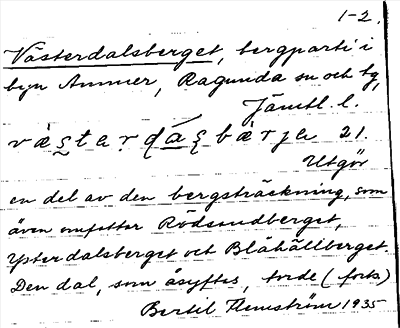 1-2.
Västerdalsberget, bergparti i
byn Ammer, Ragunda sn och tg,
Jämtl. l.
västardáʂbärja 21.
Utgör
en del av den bergsträckning, som
även omfattar Rödsundberget,
Ysterdalsberget och Blåhällberget.
Den dal, som åsyftes, torde (forts)
Bertil Flemström 1935